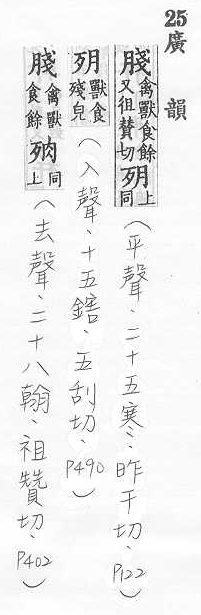 25 廣韻
䏼禽獸食餘又徂贊切上同（平聲、二十五寒、昨干切、P122）
獸食殘皃（入聲、十五鎋、五刮切、P490）
䏼禽獸食餘同上（去聲、二十八翰、祖贊切、P402）